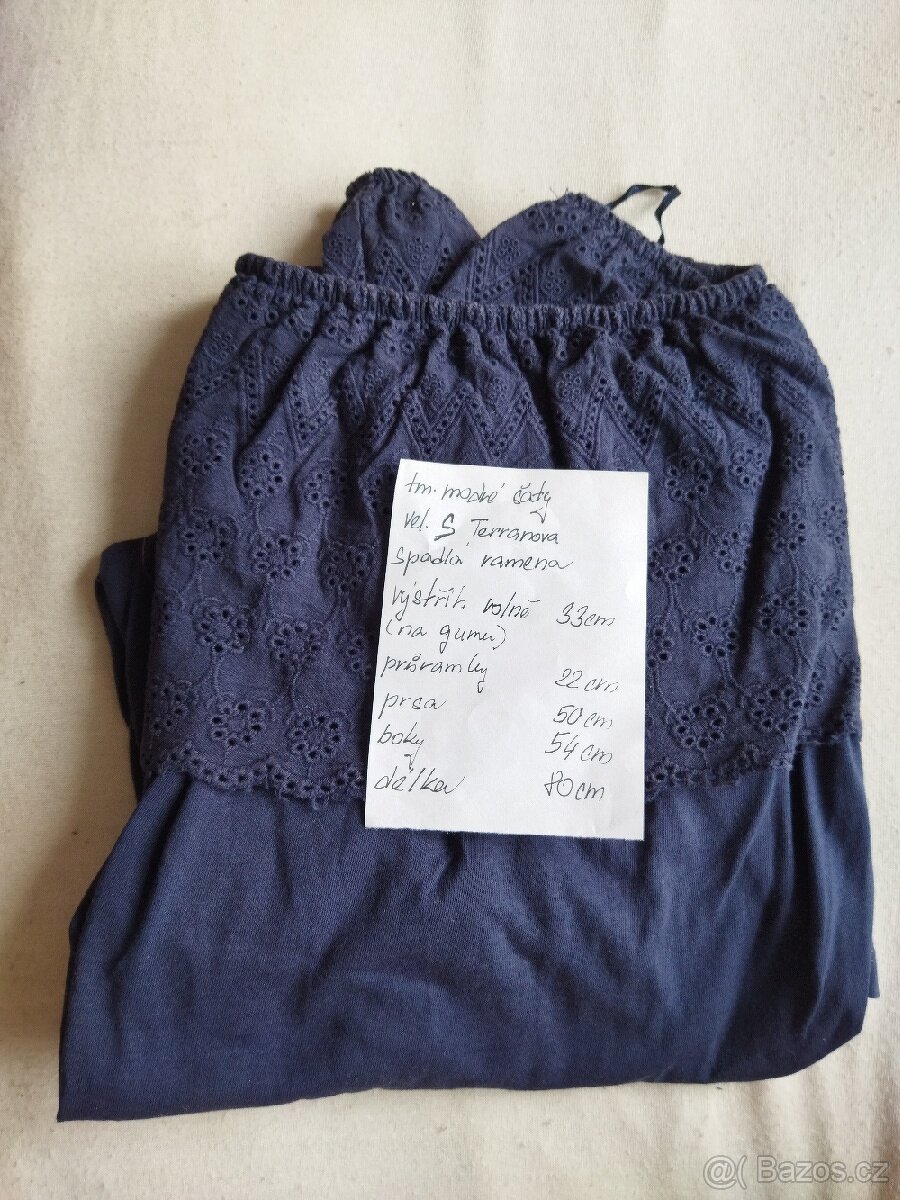 tm. modré šaty
vel. S Terranova
spadlá ramena
výstřih volně 33cm
(na gumu)
průramky 22cm
prsa 50cm
boky 54cm
délka 80cm
@( Bazos.cz